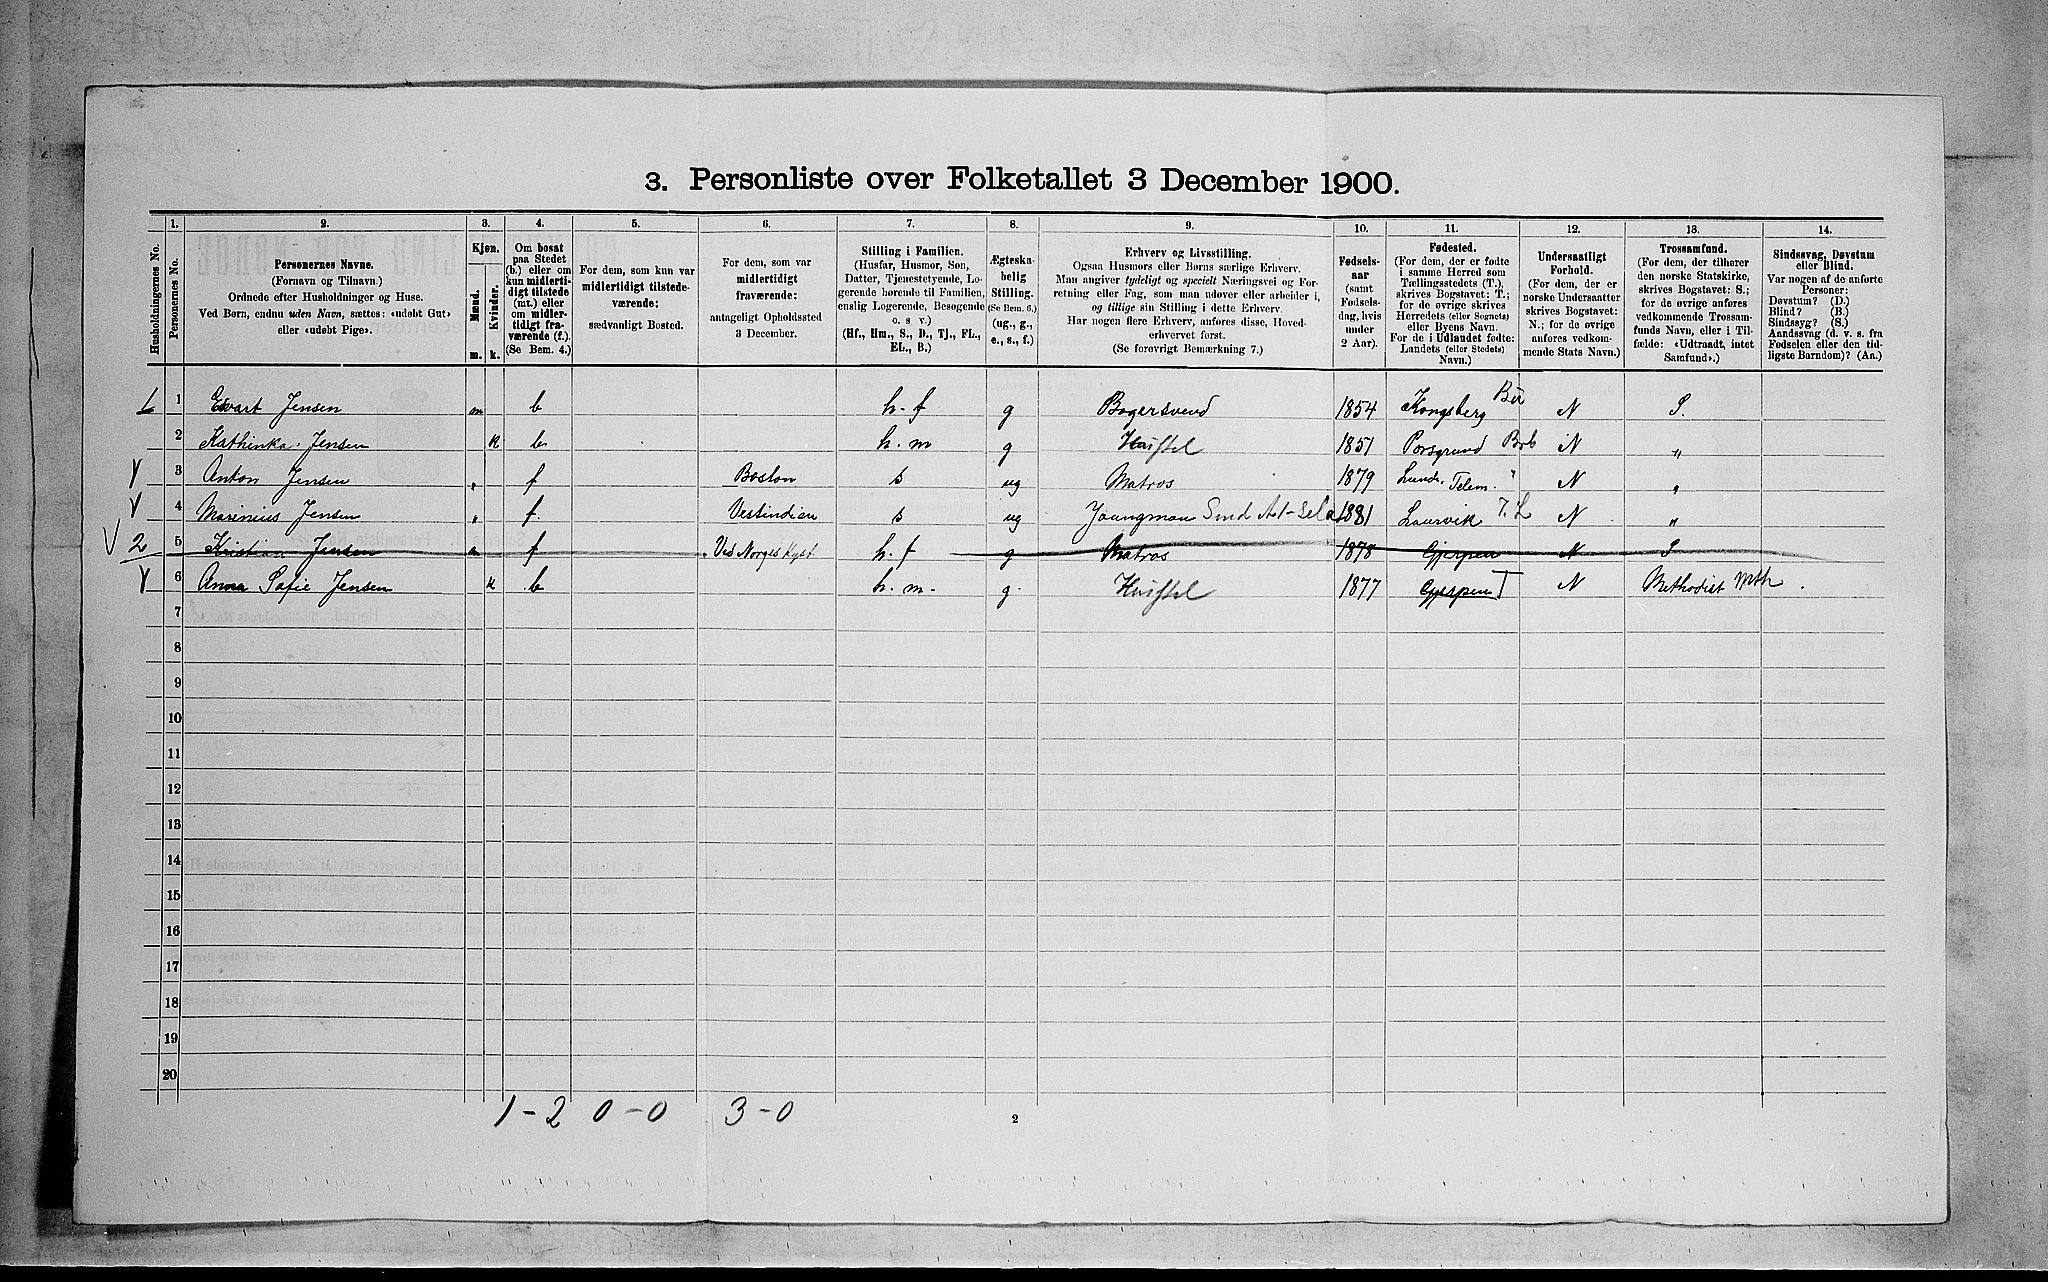 3. Personliste over Folketallet 3 December 1900.
1. 2. 3. 4. 5. 6. 7. 8. 9. 10. 11. 12. 13. 14.
Husholdningernes No.
Personernes No.
Personernes Navne.
(Fornavn og Tilnavn.)
Ordnede efter Husholdninger og Huse.
Ved Børn, endnu uden Navn, sættes: «udøbt Gut»
eller «udøbt Pige».
Kjøn.
Mænd.
Kvinder.
m. k.
Om bosat
paa Stedet
(b.) eller om
kun midlerti-
digt tilstede
(mt.) eller
om midler-
tidigt fra-
værende (f.).
(Se Bem. 4.)
For dem, som kun var
midlertidigt tilstede-
værende:
sædvanligt Bosted.
For dem, som var
midlertidigt
fraværende:
antageligt Opholdssted
3 December.
Stilling i Familien.
(Husfar, Husmor, Søn,
Datter, Tjenestetyende, Lo-
gerende hørende til Familien,
enslig Logerende, Besøgende
o. s v.)
(Hf., Hm., S., D., Tj., FL.,
EL., B.)
Ægteska-
belig
Stilling.
(Se Bem. 6.)
(ug., g.,
e., s., f.)
Erhverv og Livsstilling.
Ogsaa Husmors eller Børns særlige Erhverv.
Man angiver tydeligt og specielt Næringsvei og For-
retning eller Fag, som man udøver eller arbeider i,
og tillige sin Stilling i dette Erhverv.
Har nogen flere Erhverv, anføres disse, Hoved-
erhvervet først.
(Se forøvrigt Bemærkning 7.)
Fødsels-
aar
(samt
Fødsels-
dag, hvis
under
2 Aar).
Fødested.
(For dem, der er fødte
i samme Herred som
Tællingsstedets (T.),
skrives Bogstavet: T.;
for de øvrige skrives
Herredets (eller Sognets)
eller Byens Navn.
For de i Udlandet fødte:
Landets (eller Stedets)
Navn.)
Undersaatligt
Forhold.
(For dem, der er
norske Undersaatter
skrives Bogstavet:
N.; for de øvrige
anføres vedkom-
mende Stats Navn.)
Trossamfund.
(For dem, der tilhører
den norske Statskirke,
skrives Bogstavet: S.;
for de øvrige anføres
vedkommende Trossam-
funds Navn, eller i Til-
fælde: «Udtraadt, intet
Samfund».)
Sindssvag, Døvstum
eller Blind.
Var nogen af de anførte
Personer:
Døvstum? (D.)
Blind? (B.)
Sindssyg? (S.)
Aandssvag (d. v. s. fra
Fødselen eller den tid-
ligste Barndom)? (Aa.)
1 1 Evart Jensen m b h. f g Bogersvend 1854 Kongsberg N S.
2 Kathinka Jensen k b h. m g 1851 Porsgrund N "
3 Anton Jensen " f Boston s ug Matros 1879 Lunde. Telem. " N "
4 Marinius Jensen " f. Vestindien s ug Joungman 1881 Laurvik N "
2 5 Kristian Jensen m f Ved Norges Kyst h. f g Matros 1878 Gjerpen N S
6 Anna Sofie Jensen k b h. m. g. 1877 Gjerpen T N Methodist Mth.
7
8
9
10
11
12
13
14
15
16
17
18
19
20
1-2 0-0 3-0
2